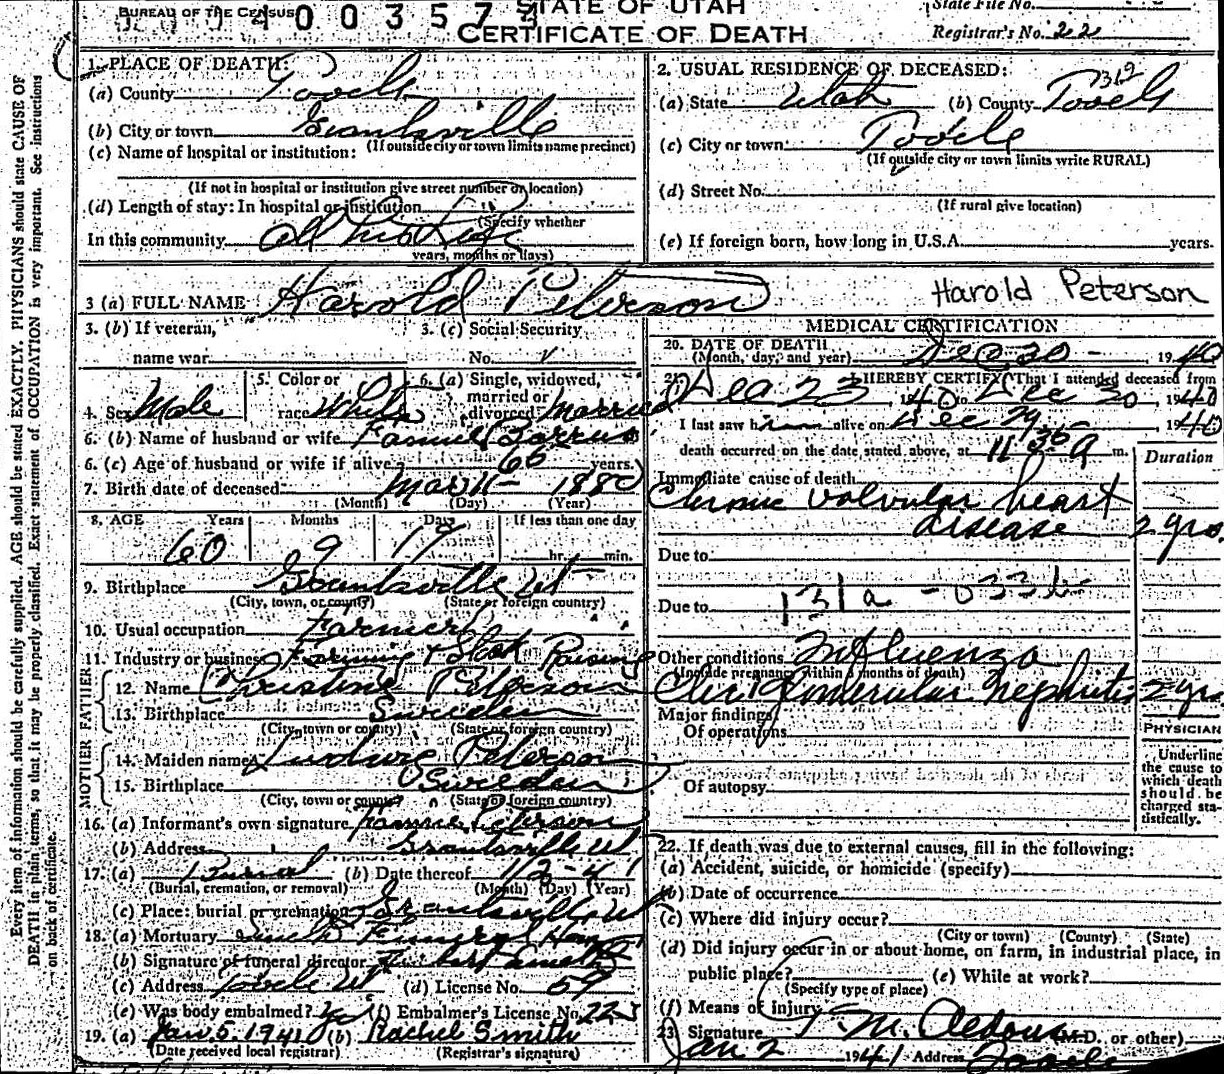 BUREAU OF THE CENSUS
STATE OF UTAH
CERTIFICATE OF DEATH
State File No.
Registrar's No. 22
1. PLACE OF DEATH:
(a) County Tooele
(b) City or town Grantsville
(If outside city or town limits name precinct)
(c) Name of hospital or institution:
(If not in hospital or institution give street number or location)
(d) Length of stay: In hospital or institution
(Specify whether
In this community all his life
years, months or days)
2. USUAL RESIDENCE OF DECEASED:
(a) State Utah (b) County Tooele
(c) City or town Tooele
(If outside city or town limits write RURAL)
(d) Street No.
(If rural give location)
(e) If foreign born, how long in U.S.A. years.
3 (a) FULL NAME Harold Peterson
Harold Peterson
3. (b) If veteran,
name war
3. (c) Social Security
No.
4. Sex Male
5. Color or
race White
6. (a) Single, widowed,
married or
divorced Married
6. (b) Name of husband or wife Barrus
6. (c) Age of husband or wife if alive years.
7. Birth date of deceased Mar 11 - 1880
(Month) (Day) (Year)
8. AGE Years Months Days If less than one day
60 9 19 hr. min.
9. Birthplace Grantsville Ut
(City, town, or county) (State or foreign country)
10. Usual occupation Farmer
11. Industry or business Farming & Stock Raising
FATHER
12. Name Peterson
13. Birthplace Sweden
(City, town or county) (State or foreign country)
MOTHER
14. Maiden name Peterson
15. Birthplace Sweden
(City, town or county) (State or foreign country)
16. (a) Informant's own signature Peterson
(b) Address Grantsville Ut
17. (a) Burial (b) Date thereof 1/2-41
(Burial, cremation, or removal) (Month) (Day) (Year)
(c) Place: burial or cremation Grantsville Ut
18. (a) Mortuary Funeral Home
(b) Signature of funeral director
(c) Address Tooele Ut (d) License No. 59
(e) Was body embalmed? Yes (f) Embalmer's License No. 223
19. (a) Jan 5, 1941 (b) Rachel Smith
(Date received local registrar) (Registrar's signature)
MEDICAL CERTIFICATION
20. DATE OF DEATH
(Month, day, and year) Dec 30 - , 1940
21. I HEREBY CERTIFY That I attended deceased from
Dec 23 1940 to Dec 30 1940
I last saw him alive on Dec 29 1940
death occurred on the date stated above, at 11 a m.
Duration
Immediate cause of death
Chronic valvular heart
disease 2 yrs.
Due to
Due to 131a - 033b
Other conditions Influenza
(Include pregnancy within 3 months of death)
Glomerular Nephritis 2 yrs
Major findings:
Of operations
Of autopsy
PHYSICIAN
Underline
the cause to
which death
should be
charged sta-
tistically.
22. If death was due to external causes, fill in the following:
(a) Accident, suicide, or homicide (specify)
(b) Date of occurrence
(c) Where did injury occur?
(City or town) (County) (State)
(d) Did injury occur in or about home, on farm, in industrial place, in
public place? (e) While at work?
(Specify type of place)
(f) Means of injury
23. Signature M. Aldous (M.D. or other)
Jan 2 1941 Address Tooele
Every item of information should be carefully supplied. AGE should be stated EXACTLY. PHYSICIANS should state CAUSE OF
DEATH in plain terms, so that it may be properly classified. Exact statement of OCCUPATION is very important. See instructions
on back of certificate.